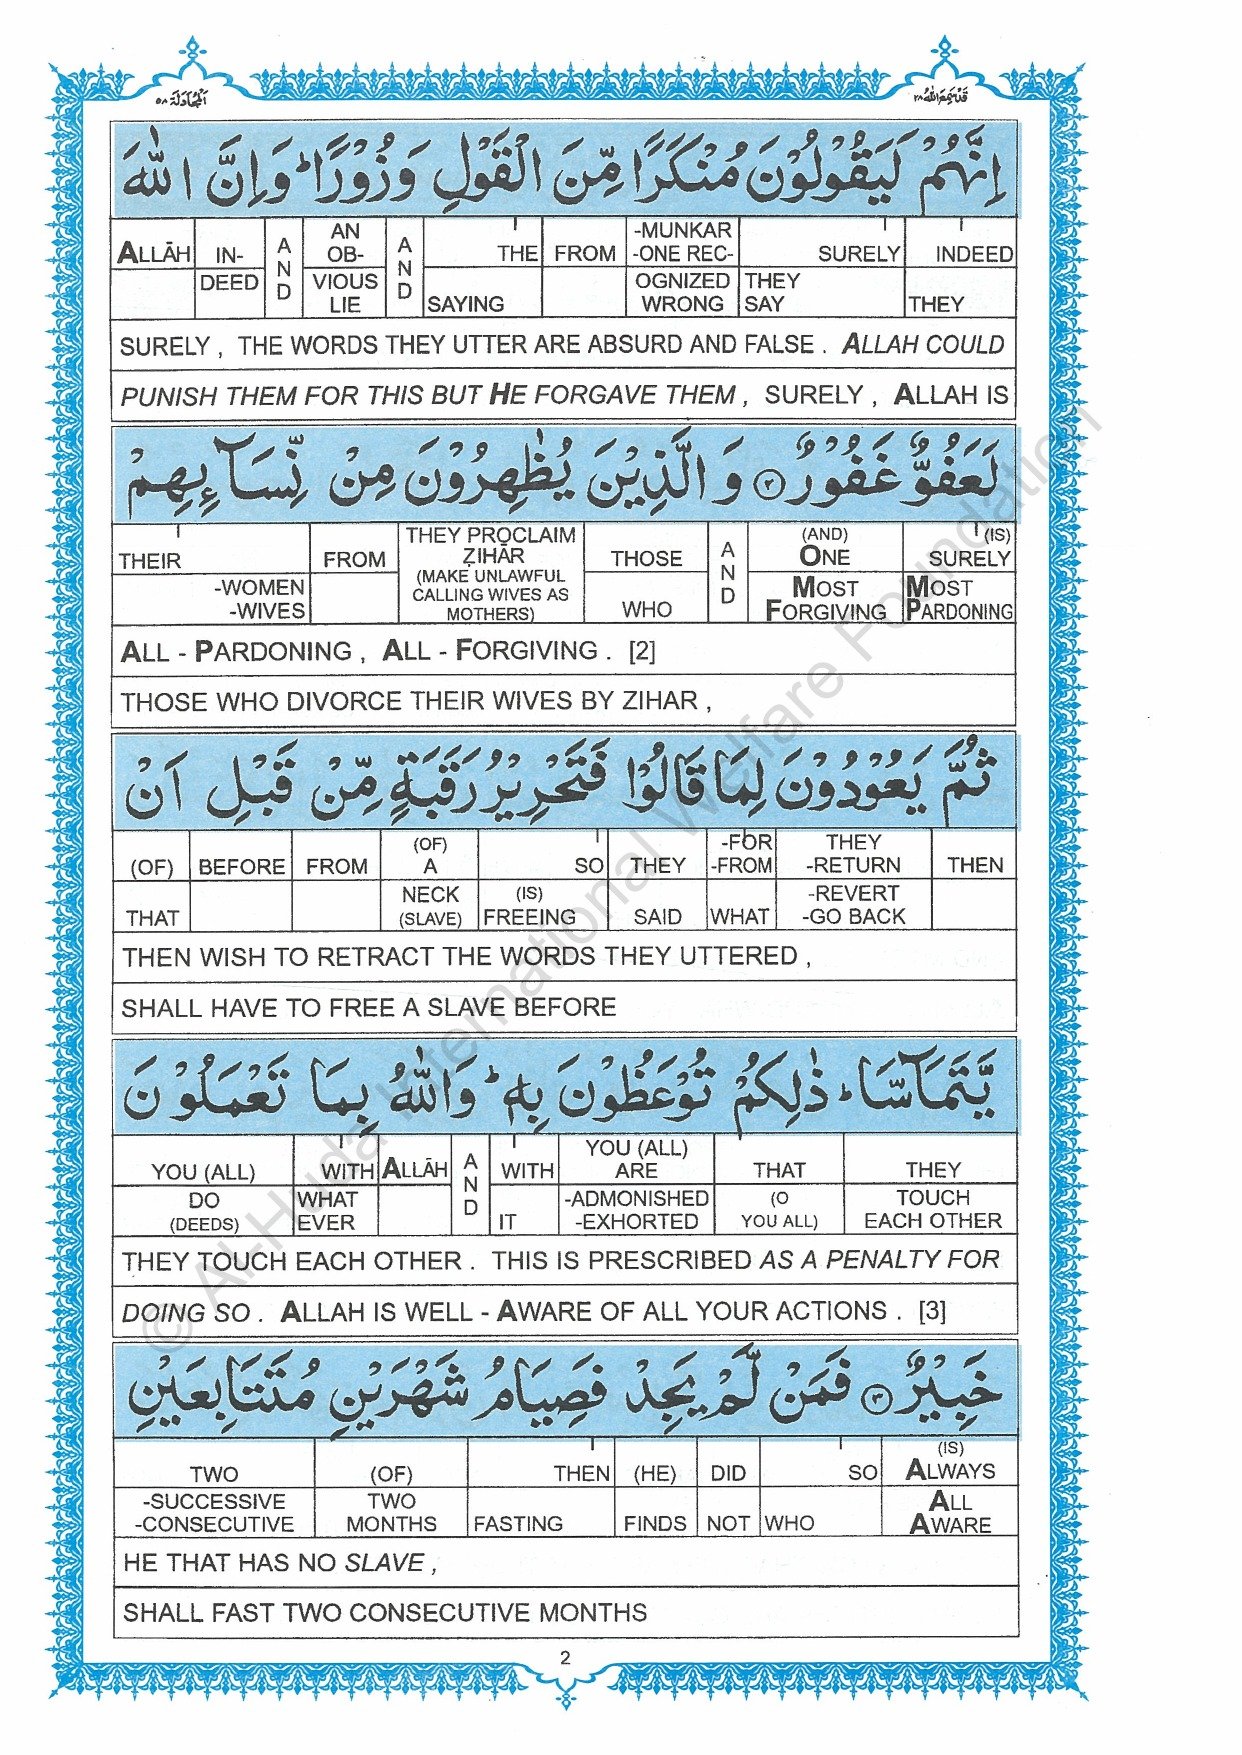 اَلْمُجَادَلَة ٥٨
قَدْ سَمِعَ اللّٰهُ ٢٨
اِنَّهُمْ لَيَقُوْلُوْنَ مُنْكَرًا مِّنَ الْقَوْلِ وَزُوْرًا ؕ وَاِنَّ اللّٰهَ
ALLĀH IN- AND AN OB- AND THE FROM -MUNKAR -ONE REC- SURELY INDEED
DEED VIOUS LIE SAYING OGNIZED WRONG THEY SAY THEY
SURELY , THE WORDS THEY UTTER ARE ABSURD AND FALSE . ALLAH COULD
PUNISH THEM FOR THIS BUT HE FORGAVE THEM , SURELY , ALLAH IS
لَعَفُوٌّ غَفُوْرٌ ۝۲ وَ الَّذِيْنَ يُظٰهِرُوْنَ مِنْ نِّسَآئِهِمْ
THEIR FROM THEY PROCLAIM ẒIHĀR THOSE AND (AND) ONE (IS) SURELY
-WOMEN -WIVES (MAKE UNLAWFUL CALLING WIVES AS MOTHERS) WHO MOST FORGIVING MOST PARDONING
ALL - PARDONING , ALL - FORGIVING . [2]
THOSE WHO DIVORCE THEIR WIVES BY ZIHAR ,
ثُمَّ يَعُوْدُوْنَ لِمَا قَالُوْا فَتَحْرِيْرُ رَقَبَةٍ مِّنْ قَبْلِ اَنْ
(OF) BEFORE FROM (OF) A SO THEY -FOR -FROM THEY -RETURN THEN
THAT NECK (SLAVE) (IS) FREEING SAID WHAT -REVERT -GO BACK
THEN WISH TO RETRACT THE WORDS THEY UTTERED ,
SHALL HAVE TO FREE A SLAVE BEFORE
يَّتَمَآسَّا ؕ ذٰلِكُمْ تُوْعَظُوْنَ بِهٖ ؕ وَاللّٰهُ بِمَا تَعْمَلُوْنَ
YOU (ALL) WITH ALLĀH AND WITH YOU (ALL) ARE THAT THEY
DO (DEEDS) WHAT EVER IT -ADMONISHED -EXHORTED (O YOU ALL) TOUCH EACH OTHER
THEY TOUCH EACH OTHER . THIS IS PRESCRIBED AS A PENALTY FOR
DOING SO . ALLAH IS WELL - AWARE OF ALL YOUR ACTIONS . [3]
خَبِيْرٌ ۝۳ فَمَنْ لَّمْ يَجِدْ فَصِيَامُ شَهْرَيْنِ مُتَتَابِعَيْنِ
TWO (OF) THEN (HE) DID SO (IS) ALWAYS
-SUCCESSIVE -CONSECUTIVE TWO MONTHS FASTING FINDS NOT WHO ALL AWARE
HE THAT HAS NO SLAVE ,
SHALL FAST TWO CONSECUTIVE MONTHS
2
© Al-Huda International Welfare Foundation